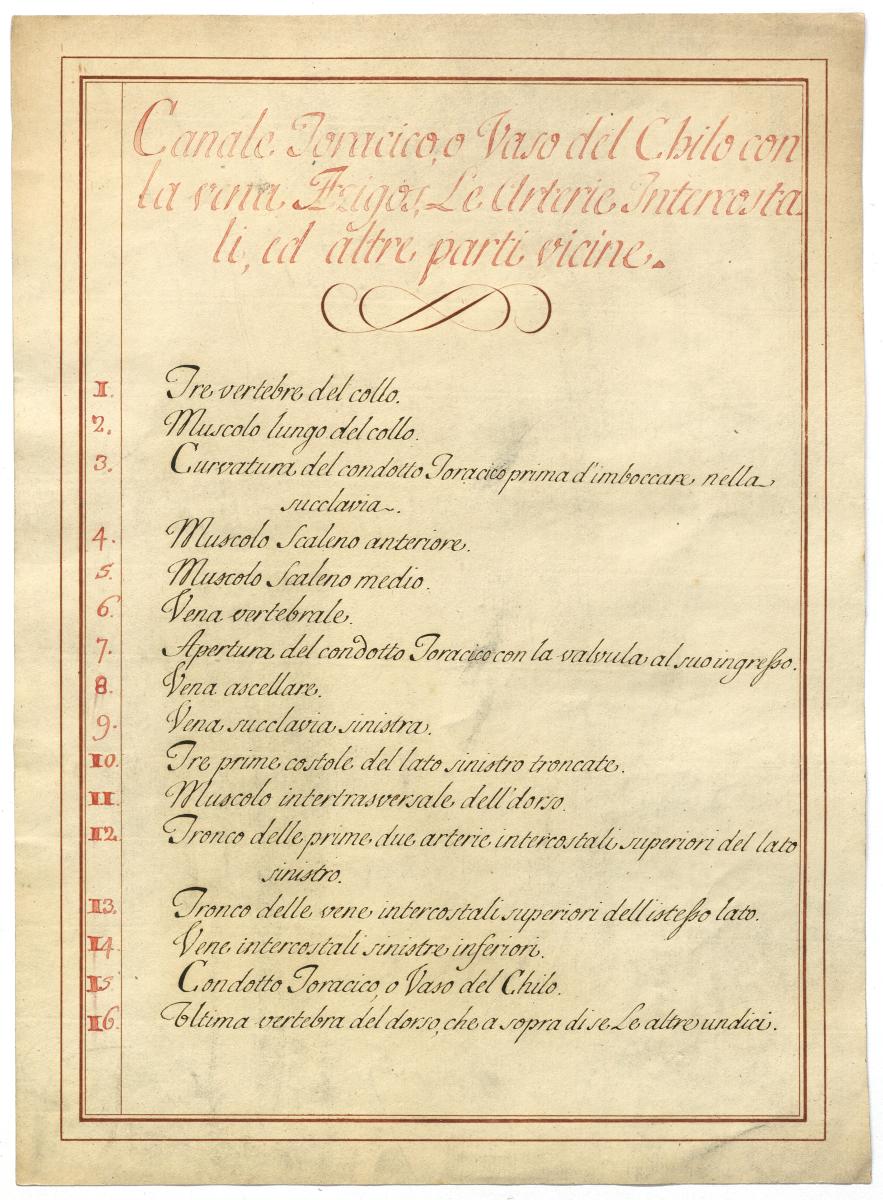 Canale Toracico, o Vaso del Chilo con
la vena Azigos, Le Arterie Intercosta
li, ed altre parti vicine.
1. Tre vertebre del collo.
2. Muscolo lungo del collo.
3. Curvatura del condotto Toracico prima d'imboccare nella
succlavia.
4. Muscolo Scaleno anteriore.
5. Muscolo Scaleno medio.
6. Vena vertebrale.
7. Apertura del condotto Toracico con la valvula al suo ingresso.
8. Vena ascellare.
9. Vena succlavia sinistra.
10. Tre prime costole del lato sinistro troncate.
11. Muscolo intertrasversale dell'dorso.
12. Tronco delle prime due arterie intercostali superiori del lato
sinistro.
13. Tronco delle vene intercostali superiori dell'istesso lato.
14. Vene intercostali sinistre inferiori.
15 Condotto Toracico, o Vaso del Chilo.
16. Ultima vertebra del dorso, che a sopra di se Le altre undici.